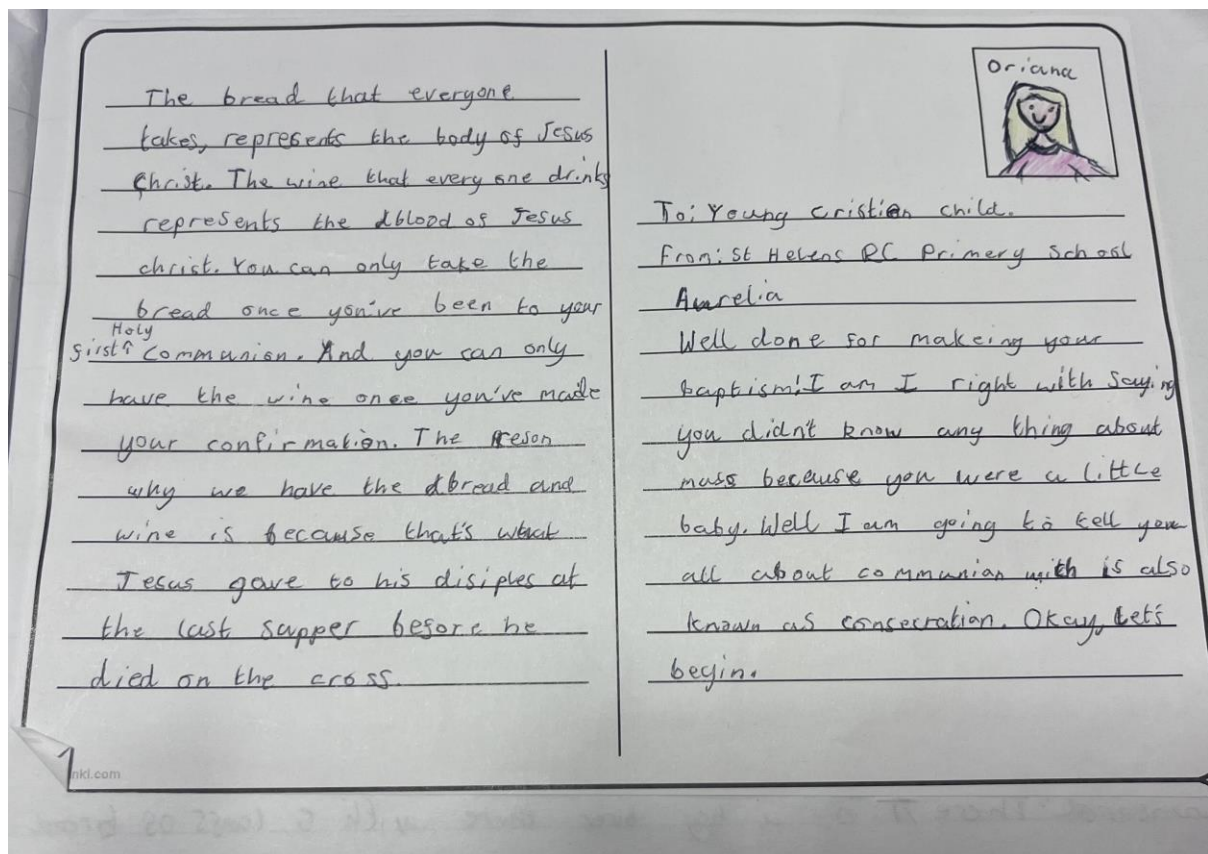 The bread that everyone
takes, represents the body of Jesus
Christ. The wine that every one drinks
represents the blood of Jesus
christ. You can only take the
bread once you've been to your
Holy
first↑ Communion. And you can only
have the wine once you've made
your confirmation. The reson
why we have the bread and
wine is because that's what
Jesus gave to his disiples at
the last supper before he
died on the cross.
nkl.com
Oriana
To: Young Cristian child.
From: St Helens RC Primary School
Aurelia
Well done for makeing your
baptism! I am I right with saying
you didn't know any thing about
mass because you were a little
baby. Well I am going to tell you
all about communian with is also
known as consecration. Okay, Let's
begin.